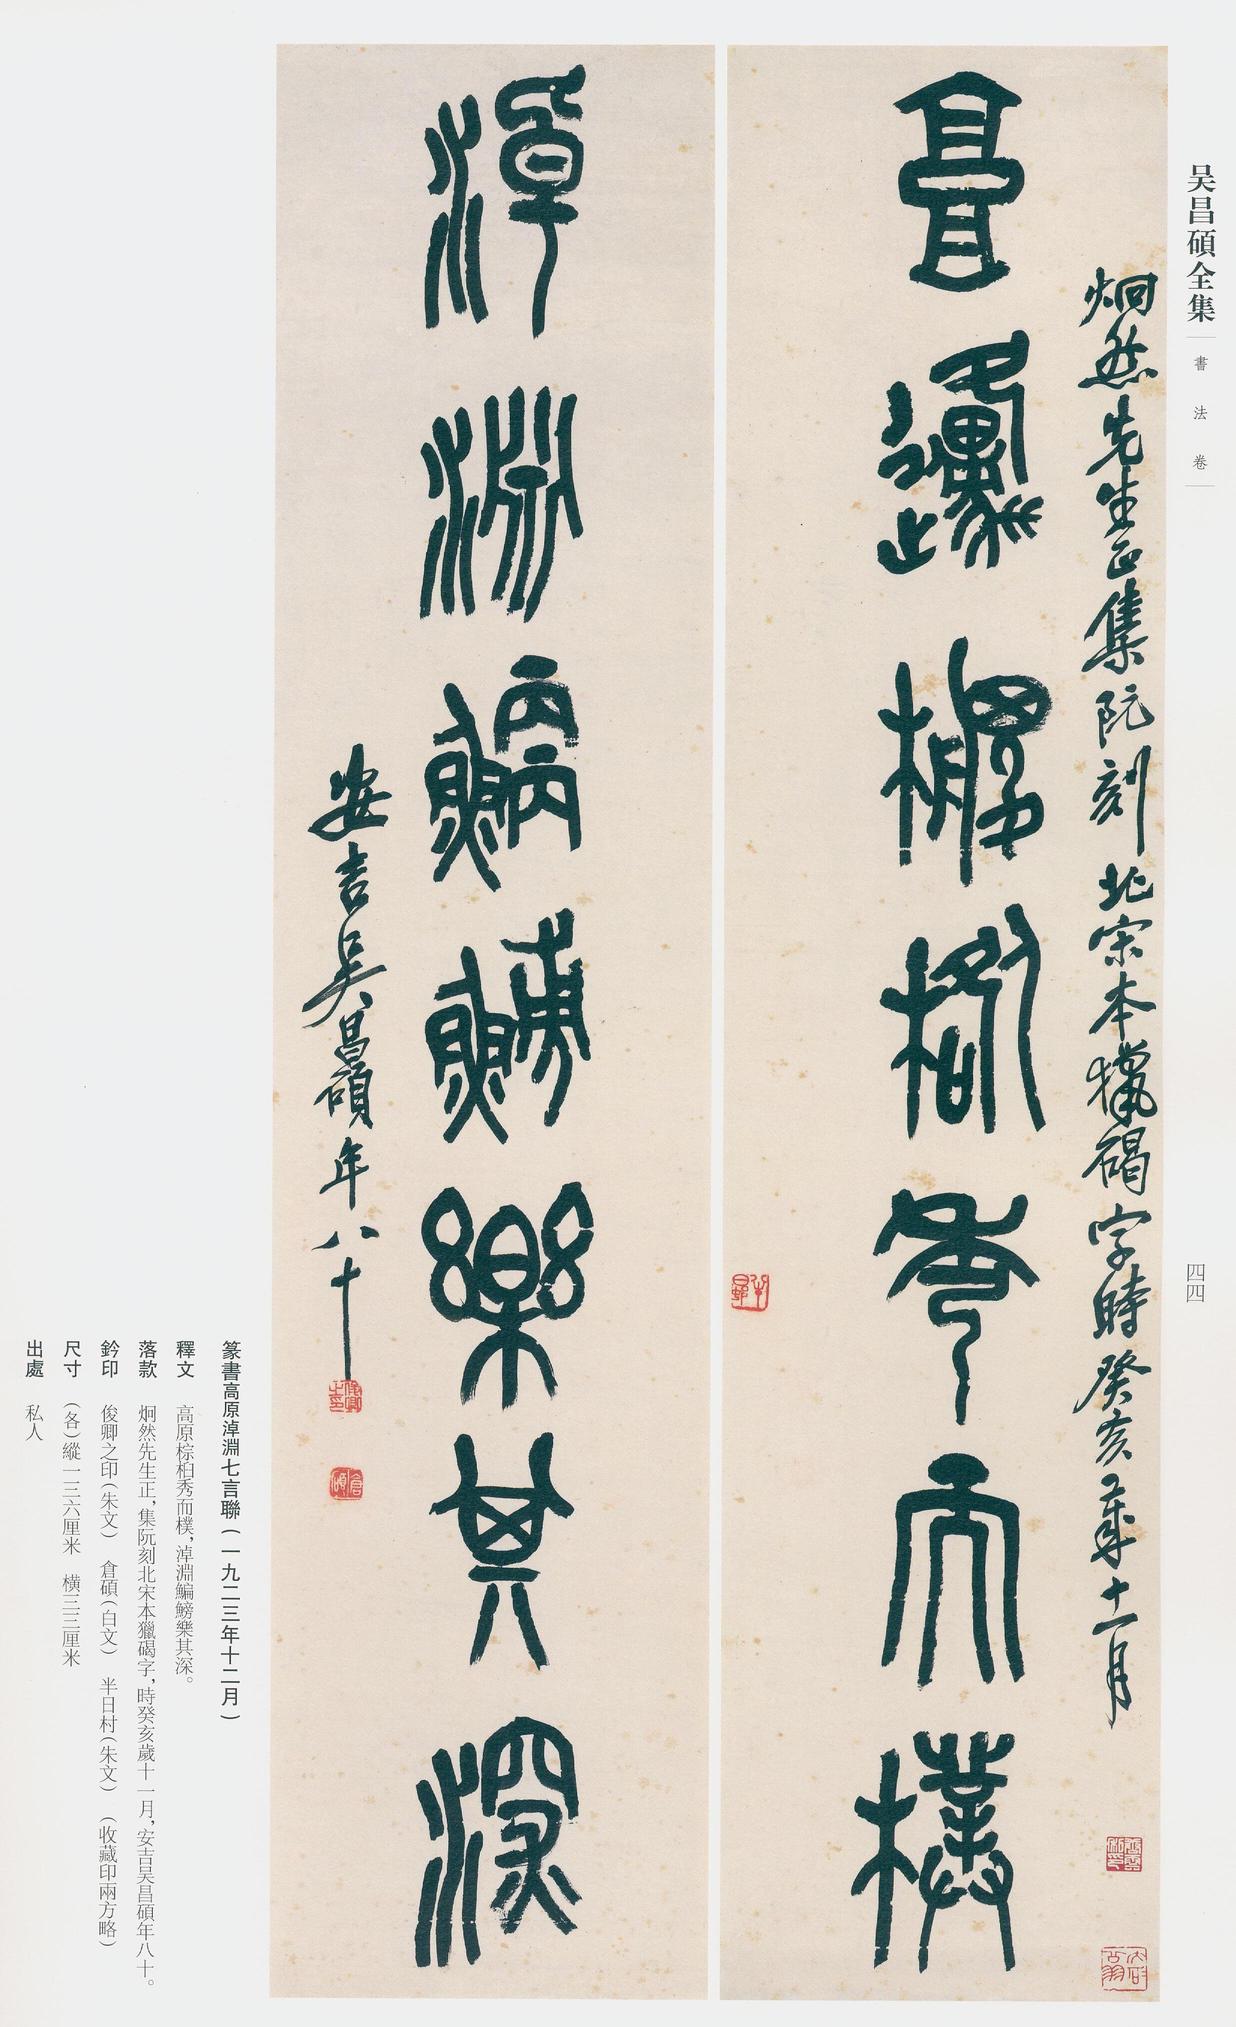 吴昌碩全集
書法卷
四四
炯然先生正集阮刻北宋本獵碣字時癸亥歲十一月
高邍椶桕秀而樸
淖淵鯾鰟樂其深
安吉吴昌碩年八十
半日邨
俊卿之印
倉碩
篆書高原淖淵七言聯(一九二三年十二月)
釋文 高原棕桕秀而樸,淖淵鯿鰟樂其深。
落款 炯然先生正,集阮刻北宋本獵碣字,時癸亥歲十一月,安吉吴昌碩年八十。
鈐印 俊卿之印(朱文) 倉碩(白文) 半日村(朱文) (收藏印兩方略)
尺寸 (各)縱一三六厘米 橫三三厘米
出處 私人